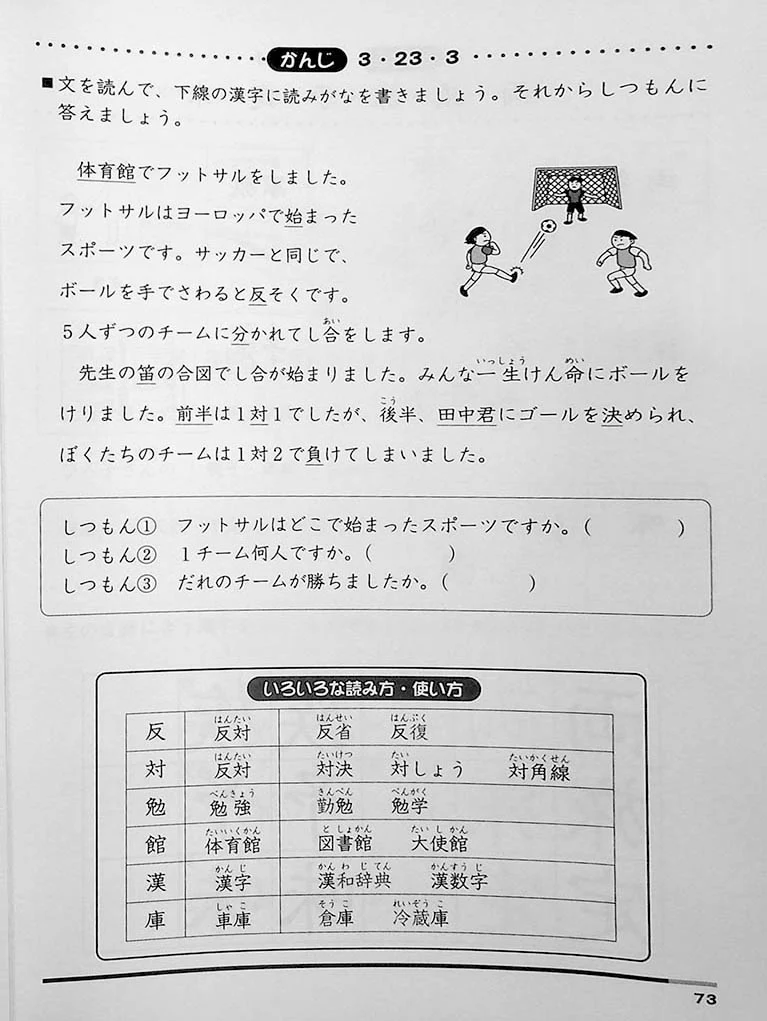 かんじ 3・23・3
■文を読んで、下線の漢字に読みがなを書きましょう。それからしつもんに
答えましょう。
体育館でフットサルをしました。
フットサルはヨーロッパで始まった
スポーツです。サッカーと同じで、
ボールを手でさわると反そくです。
あい
5人ずつのチームに分かれてし合をします。
いっしょう めい
先生の笛の合図でし合が始まりました。みんな一生けん命にボールを
こう
けりました。前半は1対1でしたが、後半、田中君にゴールを決められ、
ぼくたちのチームは1対2で負けてしまいました。
しつもん① フットサルはどこで始まったスポーツですか。( )
しつもん② 1チーム何人ですか。( )
しつもん③ だれのチームが勝ちましたか。( )
いろいろな読み方・使い方
はんたい はんせい はんぷく
反 反対 反省 反復
はんたい たいけつ たい たいかくせん
対 反対 対決 対しょう 対角線
べんきょう きんべん べんがく
勉 勉強 勤勉 勉学
たいいくかん としょかん たいしかん
館 体育館 図書館 大使館
かんじ かんわじてん かんすうじ
漢 漢字 漢和辞典 漢数字
しゃこ そうこ れいぞうこ
庫 車庫 倉庫 冷蔵庫
73